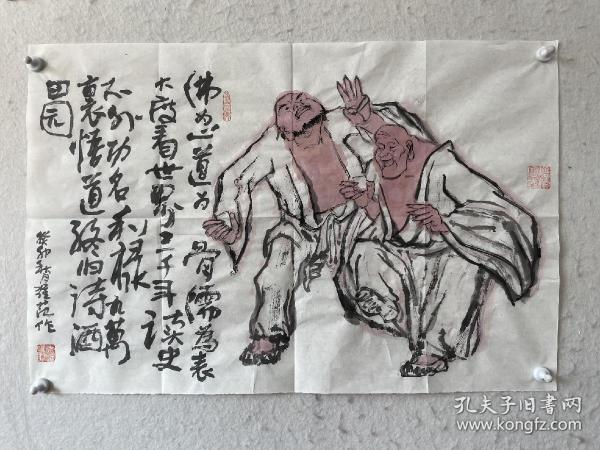 佛为心道为骨儒為表
大度看世界五千年读史
不外功名利禄九萬
裏悟道终归诗酒
田园
癸卯 作
孔夫子旧书网
www.kongfz.com